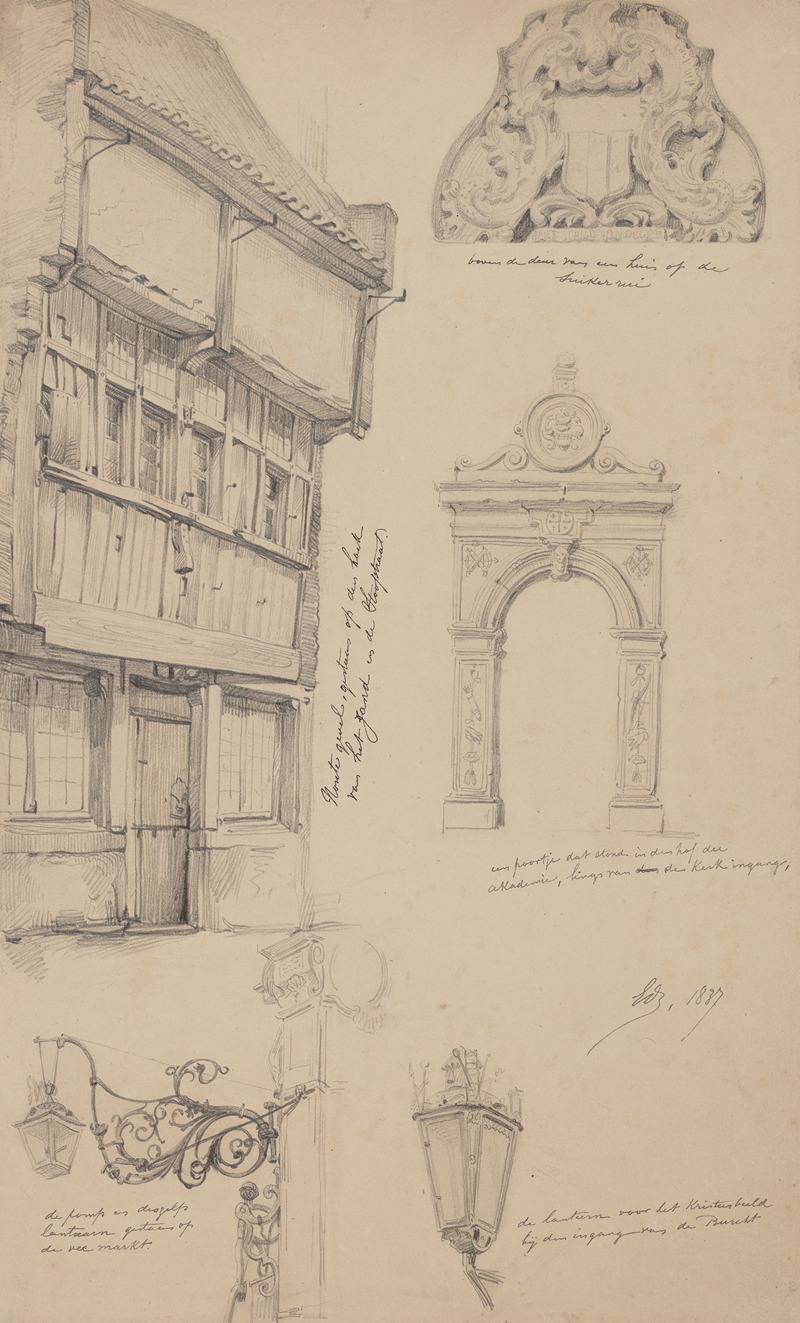 boven de deur van een huis op de
Suikerrui
Houte gevel, gestaan op den hoek
van het zand en de Stoofstraat.
een poortje dat stond in den hof der
akademie, lings van den Kerk ingang,
1837
de pomp en
lantaarn gestaan op
de vee markt.
de lantaern voor het Kristusbeeld
bij den ingang van de Burcht